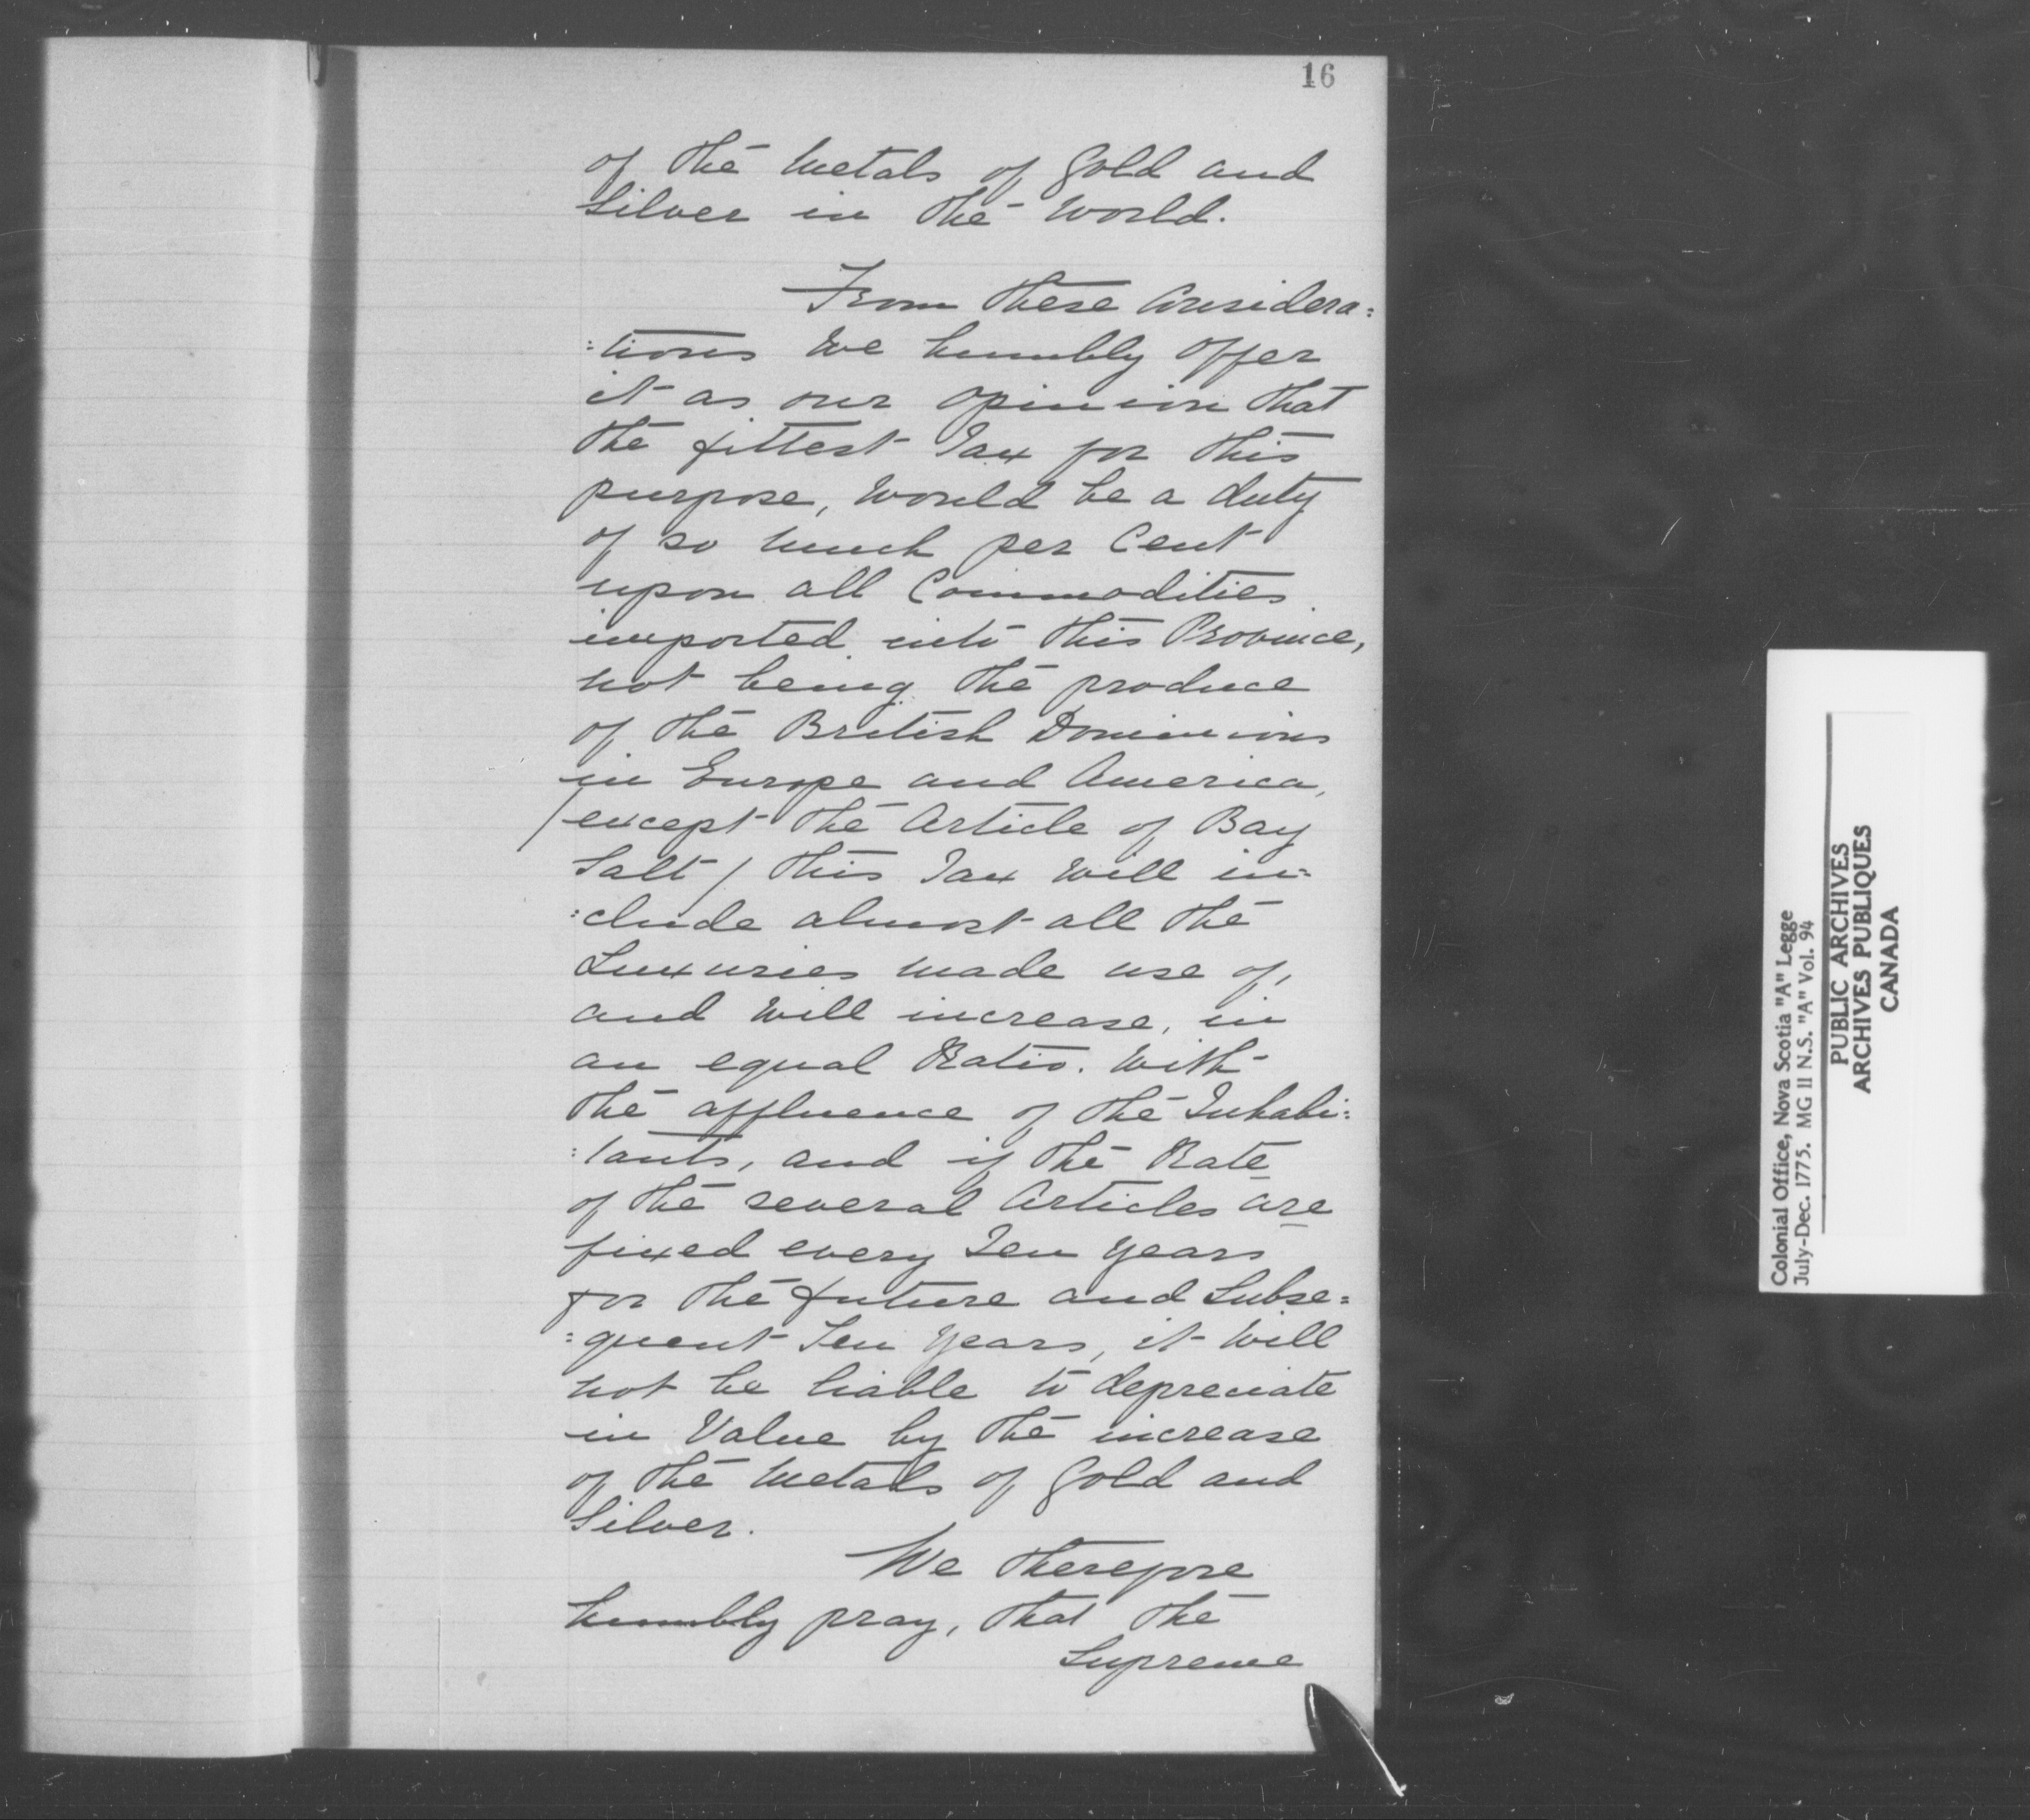 16
of the Metals of Gold and
Silver in the World.
From these Considera:
:tions We humbly Offer
it as our Opinion that
the fittest Tax for this
purpose, Would be a duty
of so much per Cent
upon all Commodities
imported into this Province,
not being the produce
of the British Dominions
in Europe and America,
/except the Article of Bay
Salt/ this Tax Will in=
:clude almost all the
Luxuries made use of,
and Will increase, in
an equal Ratio. With
the affluence of the Inhabi:
:tants, and if the Rate
of the several Articles are
fixed every Ten Years
for the future and Subse=
=quent Ten Years, it Will
not be liable to depreciate
in Value by the increase
of the Metals of Gold and
Silver.
We therefore
humbly pray, that the
Supreme
Colonial Office, Nova Scotia "A" Legge
July-Dec. 1775. MG 11 N.S. "A" Vol. 94
PUBLIC ARCHIVES
ARCHIVES PUBLIQUES
CANADA